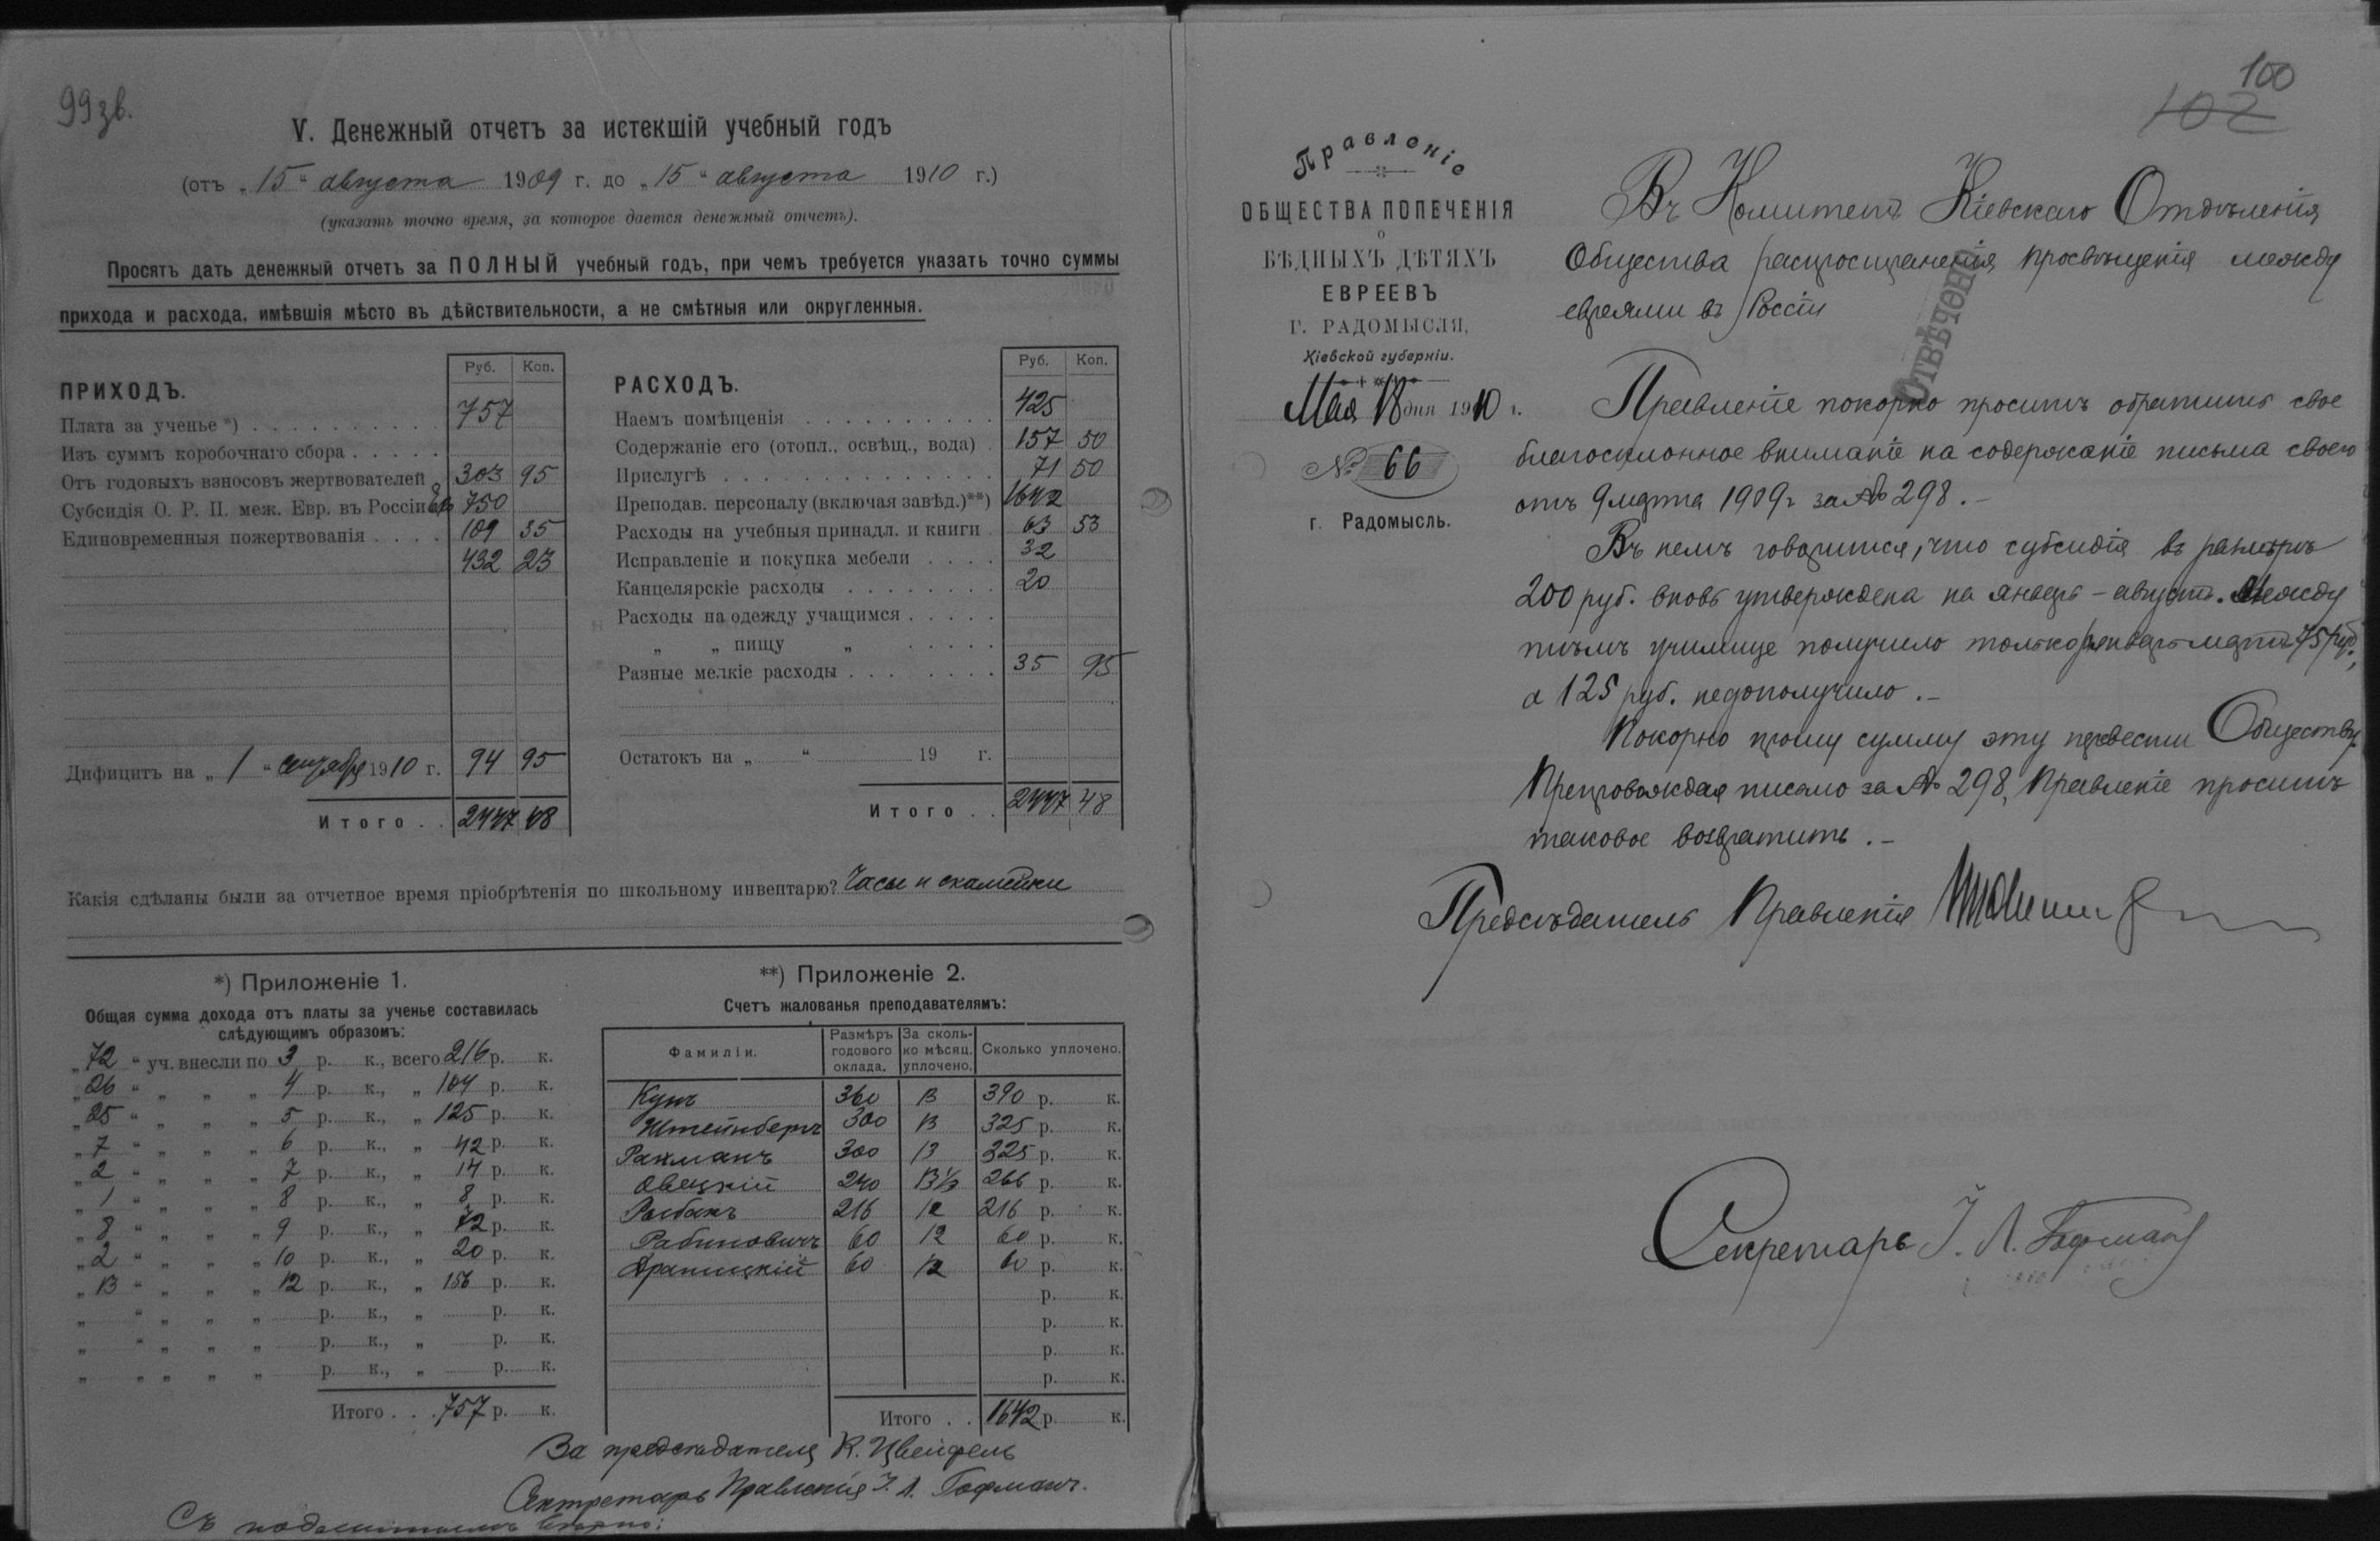 99зв.
V. Денежный отчетъ за истекшій учебный годъ
(отъ „15" августа 1909 г. до „15" августа 1910 г.)
(указать точно время, за которое дается денежный отчетъ).
Просятъ дать денежный отчетъ за ПОЛНЫЙ учебный годъ, при чемъ требуется указать точно суммы
прихода и расхода, имѣвшія мѣсто въ дѣйствительности, а не смѣтныя или округленныя.
ПРИХОДЪ. Руб. Коп.
Плата за ученье *) . . . 757
Изъ суммъ коробочнаго сбора . . . . .
Отъ годовыхъ взносовъ жертвователей 303 95
Субсидія О. Р. П. меж. Евр. въ Россіи 750
Единовременныя пожертвованія . . . . 109 35
432 23
Дифицитъ на „1" сентября 1910 г. 94 95
Итого . . 2447 48
РАСХОДЪ. Руб. Коп.
Наемъ помѣщенія . . . 425
Содержаніе его (отопл., освѣщ., вода) . 157 50
Прислугѣ . . . 71 50
Преподав. персоналу (включая завѣд.)**) 1642
Расходы на учебныя принадл. и книги . 63 53
Исправленіе и покупка мебели . . . . 32
Канцелярскіе расходы . . . 20
Расходы на одежду учащимся . . . . .
„ „ пищу „ . . . . .
Разные мелкіе расходы . . . 35 95
Остатокъ на „ " 19 г.
Итого . . 2447 48
Какія сдѣланы были за отчетное время пріобрѣтенія по школьному инвентарю? Часы и скамейки
*) Приложеніе 1.
Общая сумма дохода отъ платы за ученье составилась
слѣдующимъ образомъ:
„72" уч. внесли по 3 р. к., всего 216 р. к.
„26" „ „ „ 4 р. к., „ 104 р. к.
„25" „ „ „ 5 р. к., „ 125 р. к.
„7" „ „ „ 6 р. к., „ 42 р. к.
„2" „ „ „ 7 р. к., „ 14 р. к.
„1" „ „ „ 8 р. к., „ 8 р. к.
„8" „ „ „ 9 р. к., „ 72 р. к.
„2" „ „ „ 10 р. к., „ 20 р. к.
„13" „ „ „ 12 р. к., „ 156 р. к.
„ " „ „ „ р. к., „ р. к.
„ " „ „ „ р. к., „ р. к.
„ „ „ „ „ р. к., „ р. к.
Итого . . . 757 р. к.
**) Приложеніе 2.
Счетъ жалованья преподавателямъ:
Фамиліи. Размѣръ годового оклада. За сколько мѣсяц. уплочено. Сколько уплочено.
Кунъ 360 13 390 р. к.
Штейнбергъ 300 13 325 р. к.
Рахманъ 300 13 325 р. к.
Овецкій 240 13⅓ 266 р. к.
216 12 216 р. к.
Рабиновичъ 60 12 60 р. к.
60 12 60 р. к.
р. к.
р. к.
р. к.
р. к.
Итого . . 1642 р. к.
За предсѣдателя К. Цвейфель
Секретарь Правленія І. Л. Гофманъ.
Съ подлиннымъ вѣрно:
100
102
Правленіе
ОБЩЕСТВА ПОПЕЧЕНІЯ
о
БѢДНЫХЪ ДѢТЯХЪ
ЕВРЕЕВЪ
Г. РАДОМЫСЛЯ,
Кіевской губерніи.
Мая 18 дня 1910 г.
№ 66
г. Радомысль.
Въ Комитетъ Кіевскаго Отдѣленія
Общества распространенія просвѣщенія между
евреями въ Россіи
ОТВѢЧЕНО
Правленіе покорно проситъ обратить свое
благосклонное вниманіе на содержаніе письма своего
отъ 9 марта 1909 г за № 298.-
Въ немъ говорится, что субсидія въ размѣрѣ
200 руб. вновь утверждена на январь - августъ. Между
тѣмъ училище получило только январь-мартъ 75 руб.,
а 125 руб. недополучило.-
Покорно прошу сумму эту перевести Обществу.
Препровождая письмо за № 298, Правленіе проситъ
таковое возвратить.-
Предсѣдатель Правленія
Секретарь І. Л. Гофманъ